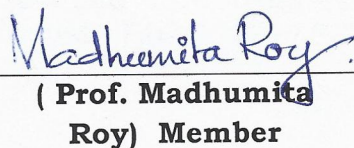 Madhumita Roy.
( Prof. Madhumita
Roy) Member